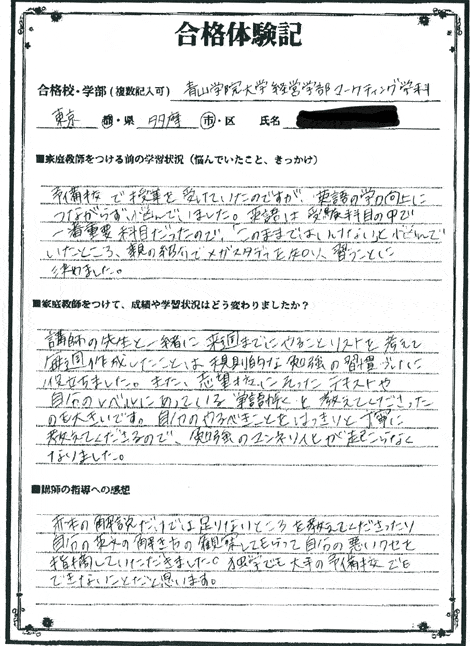 合格体験記
合格校・学部(複数記入可) 青山学院大学経営学部マーケティング学科
東京 都・県 多摩 市・区 氏名
■家庭教師をつける前の学習状況(悩んでいたこと、きっかけ)
予備校で授業を受けていたのですが、英語の学力向上に
つながらず、悩んでいました。英語は受験科目の中で
一番重要科目だったので、「このままではいけない」と悩んで
いたところ、親の紹介でメガスタディを知り、習うことに
決めました。
■家庭教師をつけて、成績や学習状況はどう変わりましたか?
講師の先生と一緒に来週までにやることリストを考えて
毎週作成したことは規則的な勉強の習慣づけに
役立ちました。また、志望校にそったテキストや
自分のレベルにあっている単語帳を教えてくださった
のも大きいです。自分のやるべきことをはっきりと丁寧に
教えてくださるので、勉強のマンネリ化が起こらなく
なりました。
■講師の指導への感想
赤本の解説だけでは足りないところを教えてくださったり
自分の英文の解き方の観察してもらって自分の悪いクセを
指摘していただきました。独学でも大手の予備校でも
できないことだと思います。